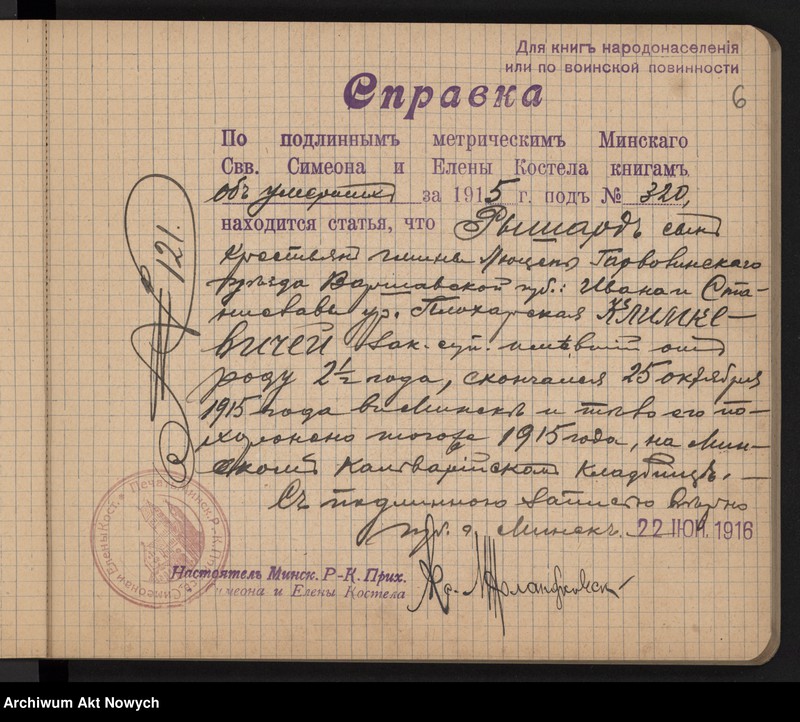 Для книгъ народонаселенія
или по воинской повинности
6
Справка
По подлиннымъ метрическимъ Минскаго
Свв. Симеона и Елены Костела книгамъ
объ умершихъ за 1915 г. подъ № 320,
находится статья, что Рышардъ сынъ
крестьянъ гмины Гарволинскаго
уѣзда Варшавской губ.: Ивана и Ста-
ниславы ур. Плохарская Климке-
вичей зак. суп. имѣвший отъ
роду 2½ года, скончался 25 октября
1915 года въ Минскѣ и тѣло его по-
хоронено тогоже 1915 года, на Мин-
скомъ Кальварійскомъ Кладбищѣ. —
Съ подлинною записью вѣрно
г. Минскъ. 22 ІЮН. 1916
Настоятель Минск. Р-К. Прих.
Симеона и Елены Костела
Кс.
№ 121.
Archiwum Akt Nowych